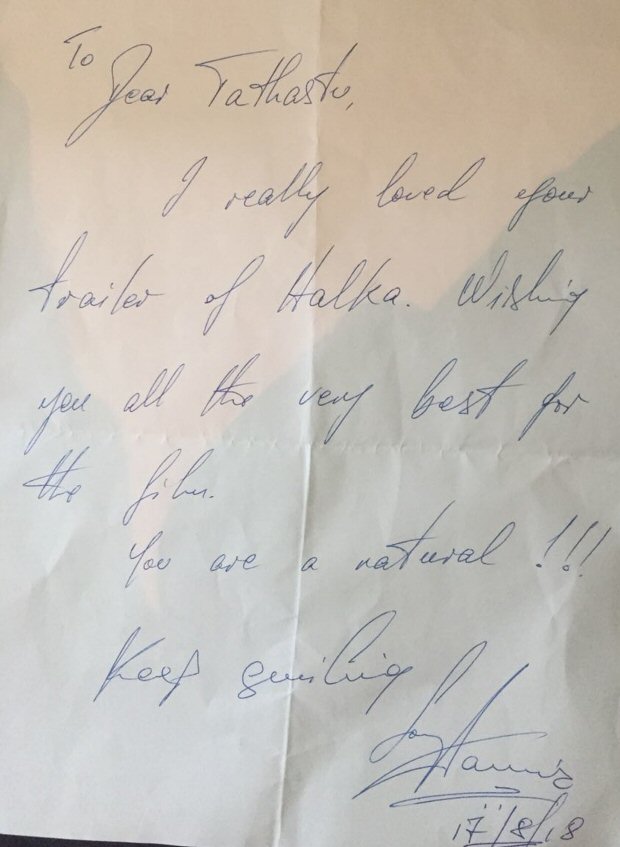 To
Dear Tathastu,
I really loved your
trailer of Halka. Wishing
you all the very best for
the film.
You are a natural !!!
Keep smiling
17/8/18